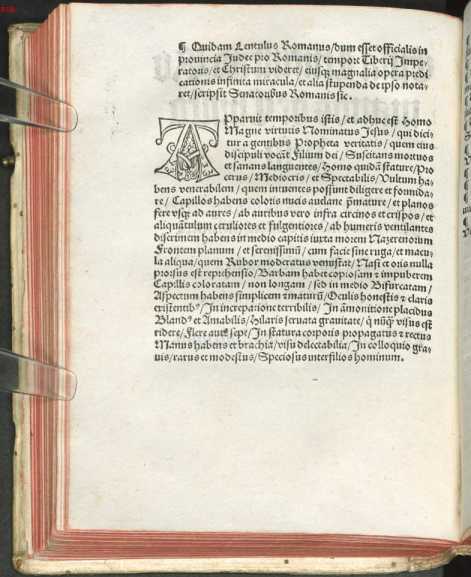 ¶ Quidam Lentulus Romanus/dum esset officialis in
prouincia Judee pro Romanis/tempore Tiberij Impe-
ratoris/et Christum videret/eiusq; magnalia opera predi-
cationis infinita miracula/et alia stupenda de ipso nota-
ret/scripsit Senatoribus Romanis sic.
APparuit temporibus istis/et adhuc est Homo
Magne virtutis Nominatus Jesus/qui dici-
tur a gentibus Propheta veritatis/quem eius
discipuli vocāt Filium dei/Suscitans mortuos
et sanans languentes/Homo quidā stature/Pro
cerus/Mediocris/et Spectabilis/Vultum ha-
bens venerabilem/quem intuentes possunt diligere et formida-
re/Capillos habens coloris nucis auelane p̄mature/et planos
fere vsq; ad aures/ab auribus vero infra circinos et crispos/et
aliquātulum ceruliores et fulgentiores/ab humeris ventilantes
discrimen habens in medio capitis iuxta morem Nazerenorum
Frontem planum/et serenissimū/cum facie sine ruga/et macu-
la aliqua/quem Rubor moderatus venustat/Nasi et oris nulla
prorsus est reprehensio/Barbam habet copiosam et impuberem
Capillis coloratam/non longam/sed in medio Bifurcatam/
Aspectum habens simplicem et maturū/Oculis honestis et claris
existentib⁹/In increpatione terribilis/In āmonitione placidus
Bland⁹ et Amabilis/Hilaris seruata grauitate/q̄ nūq̄ visus est
ridere/Flere aut sepe/In statura corporis propagatus et rectus
Manus habens et brachia/visu delectabilia/In colloquio gra-
uis/rarus et modestus/Speciosus inter filios hominum.